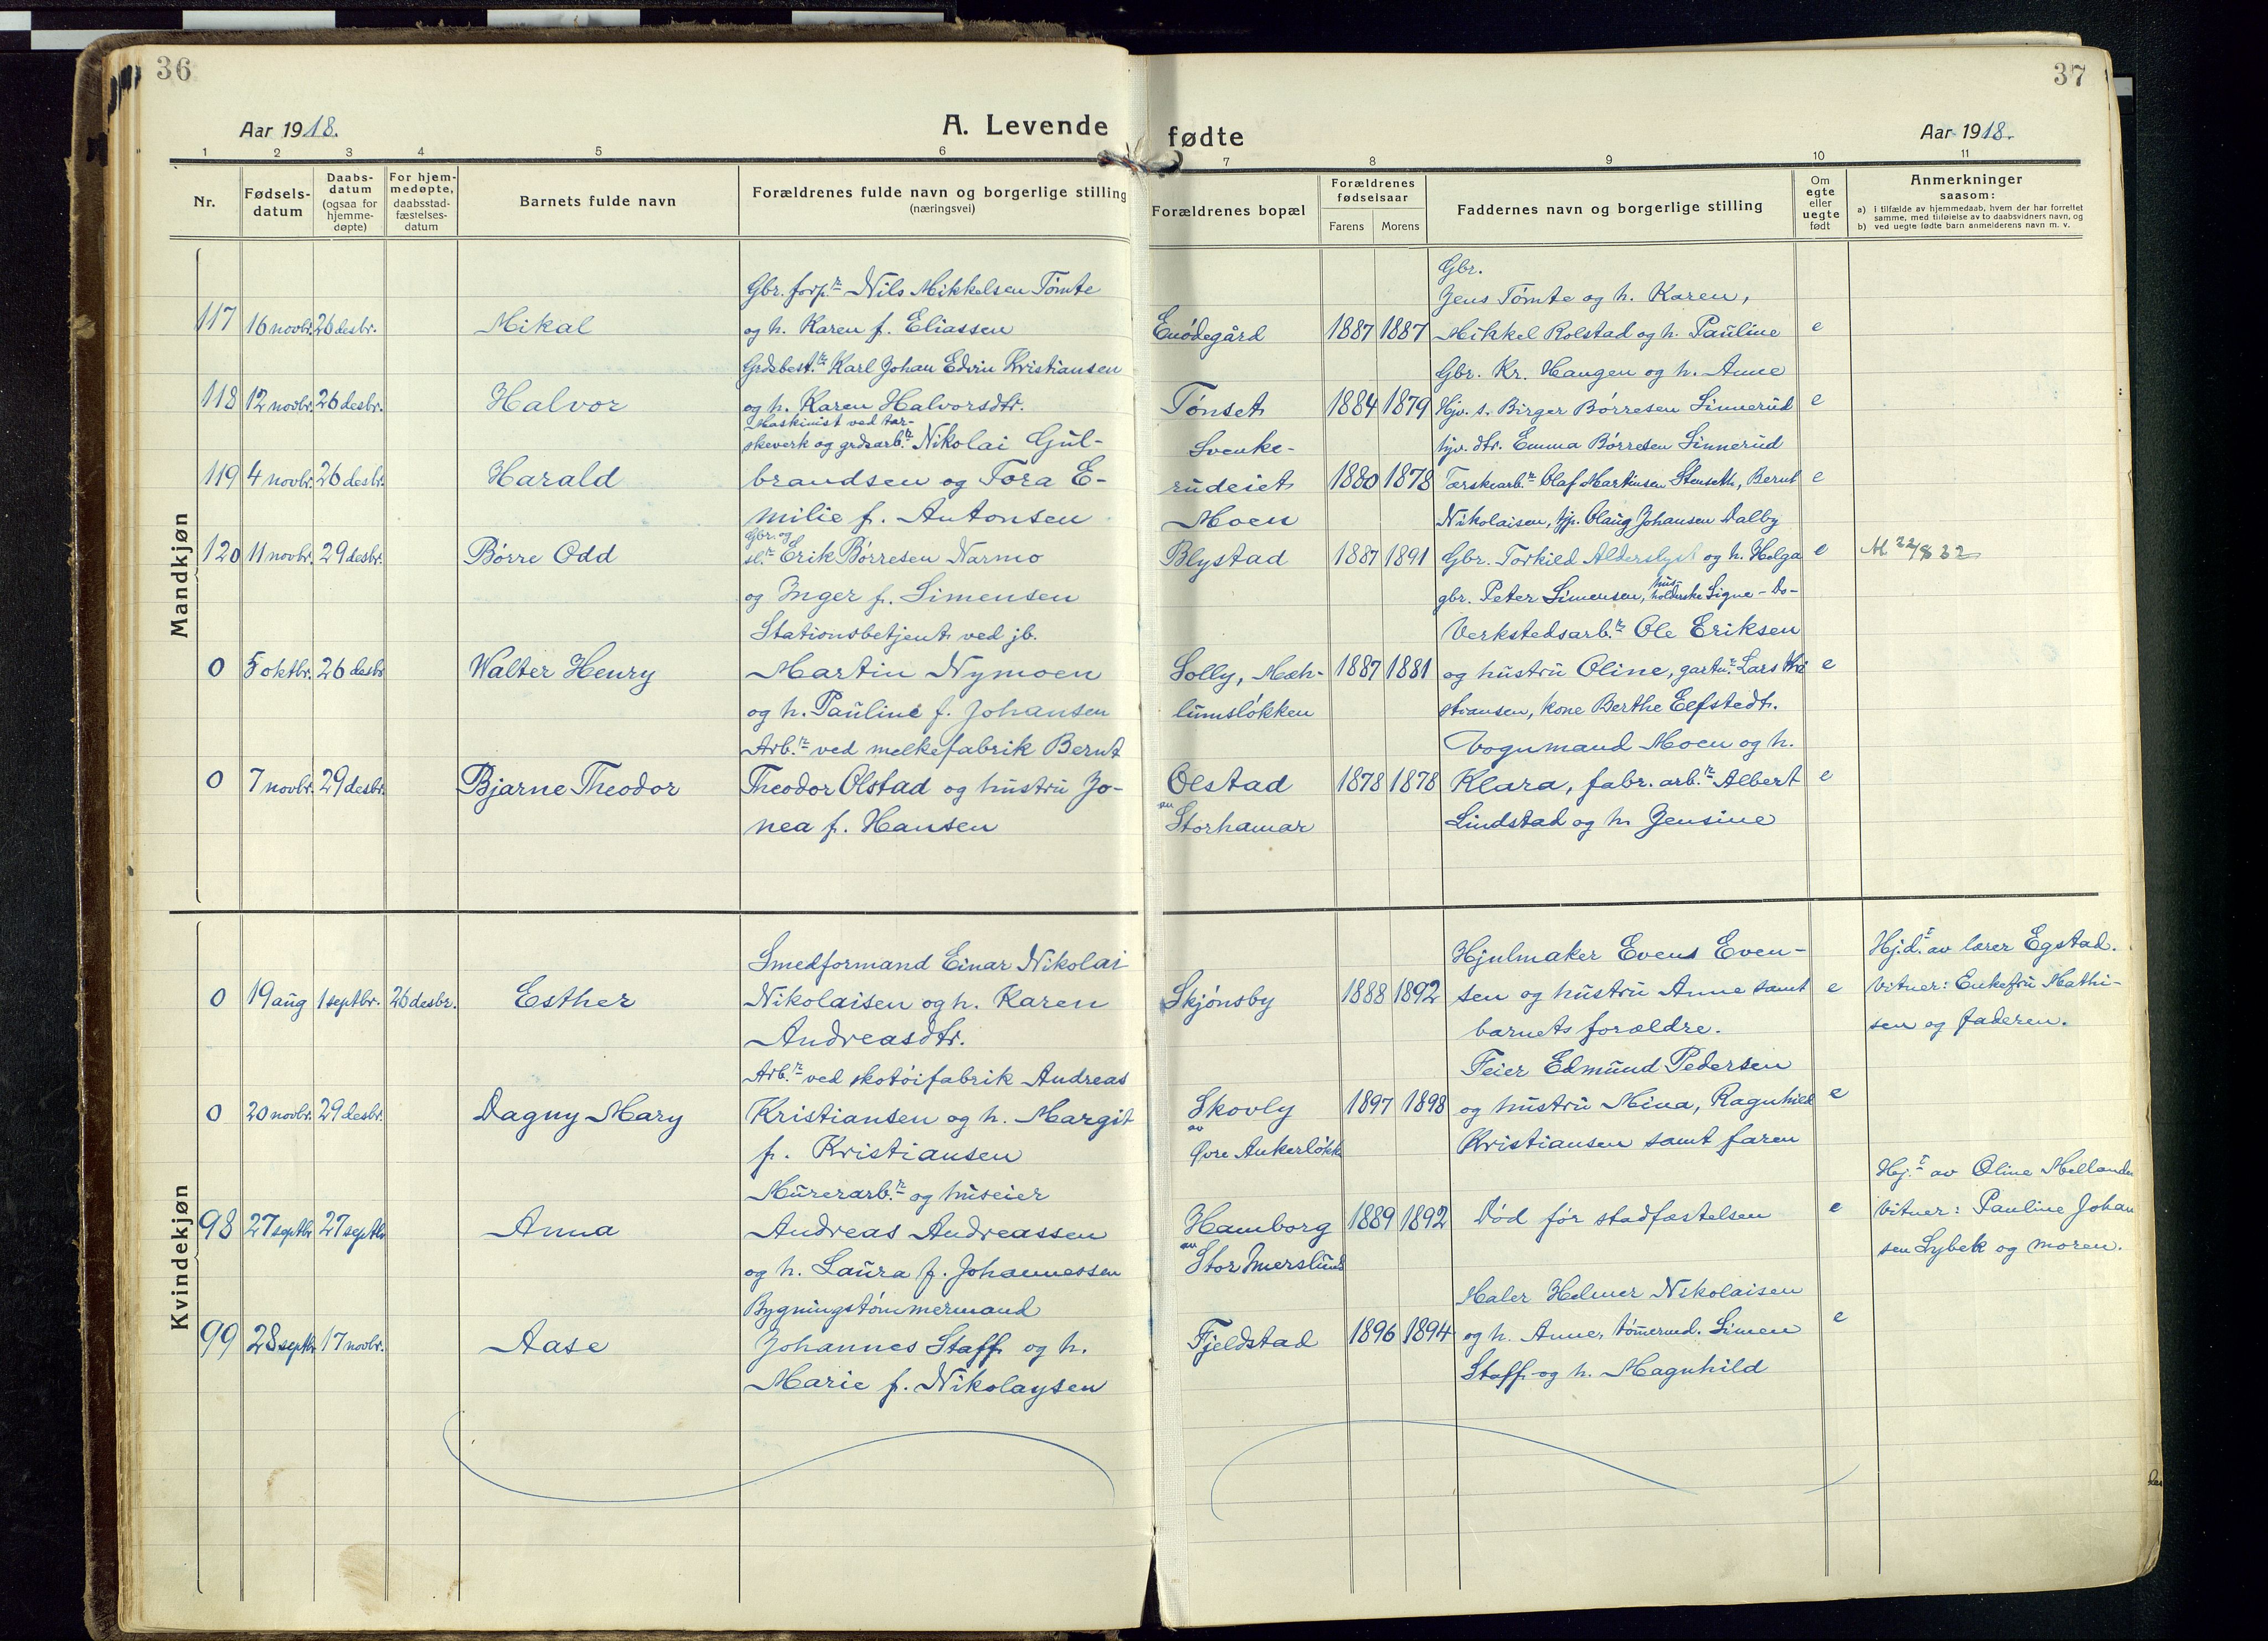 36
37
Aar 1918.
A. Levende fødte
Aar 1918.
1 2 3 4 5 6 7 8 9 10 11
Nr.
Fødsels-
datum
Daabs-
datum
(ogsaa for
hjemme-
døpte)
For hjem-
medøpte,
daabsstad-
fæstelses-
datum
Barnets fulde navn
Forældrenes fulde navn og borgerlige stilling
(næringsvei)
Forældrenes bopæl
Forældrenes
fødselsaar
Farens Morens
Faddernes navn og borgerlige stilling
Om
egte
eller
uegte
født
Anmerkninger
saasom:
a) i tilfælde av hjemmedaab, hvem der har forrettet
samme, med tilføielse av to daabsvidners navn, og
b) ved uegte fødte barn anmelderens navn m. v.
Mandkjøn
Gbr. forp.r Nils Mikkelsen Tømte
Gbr.
Jens Tømte og h. Karen,
117 16 novbr. 26 desbr. Mikal og h. Karen f. Eliassen Enødegård 1887 1887 Mikkel Rolstad og h. Pauline e
Grdbest.r Karl Johan Edvin Kristiansen Gbr. Kr. Haugen og h. Anne
118 12 novbr. 26 desbr. Halvor og h. Karen Halvorsdtr. Tønset 1884 1879 Hjv. s. Birger Børresen Linnerud e
Maskinist ved tær-
skeverk og grdsarb.r Nikolai Gul- Svenke- hjv. dtr. Emma Børresen Linnerud
119 4 novbr. 26 desbr. Harald brandsen og Tora E- rudeiet 1880 1878 Tærskearb.r Olaf Martinsen Stenseth, Bernt e
milie f. Antonsen Moen Nikolaisen, tjp. Olaug Johansen Dalby
Gbr. og
120 11 novbr. 29 desbr. Børre Odd sl.r Erik Børresen Narmo Blystad 1887 1891 Gbr. Torkild Alderslyst og h. Helga e M 22/8 32
og Inger f. Simensen gbr. Peter Simensen, husholderske Signe - Do -
Stationsbetjent ved jb. Verkstedsarb.r Ole Eriksen
0 5 oktbr. 26 desbr Walter Henry Martin Nymoen Solly, Mæh- 1887 1881 og hustru Oline, gartn.r Lars Kri e
og h. Pauline f. Johansen lumsløkken stiansen, kone Berthe Elfstedt.
Arb.r ved melkefabrik Bernt Vognmand Moen og h.
0 7 novbr. 29 desbr. Bjarne Theodor Theodor Olstad og hustru Jo- Olstad 1878 1878 Klara, fabr. arb.r Albert e
nea f. Hansen av Storhamar Lindstad og h. Jensine
Kvindekjøn
Smedformand Einar Nikolai Hjulmaker Evens Even- Hj.d.t av lærer Egstad.
0 19 aug 1 septbr. 26 desbr. Esther Nikolaisen og h. Karen Skjønsby 1888 1892 sen og hustru Anne samt e Vitner: Enkefru Mathi-
Andreasdtr. barnets forældre. sen og faderen.
Arb.r ved skotøifabrik Andreas Feier Edmund Pedersen
0 20 novbr. 29 desbr. Dagny Mary Kristiansen og h. Margit Skovly 1897 1898 og hustru Mina, Ragnhild e
f. Kristiansen av Øvre Ankerløkk Kristiansen samt faren
Murerarb.r og huseier Hj.t av Oline Mellande
98 27 septbr 27 septbr Anna Andreas Andreassen Hamborg 1889 1892 Død før stadfæstelsen e Vitner: Pauline Johan
og h. Laura f. Johannessen av Stor Imerslund sen Lybek og moren.
Bygningstømmermand Maler Helmer Nikolaisen
99 28 septbr 17 novbr. Aase Johannes Staff og h. Fjeldstad 1896 1894 og h. Anne, tømermd. Simen e
Marie f. Nikolaysen Staff og h. Magnhild